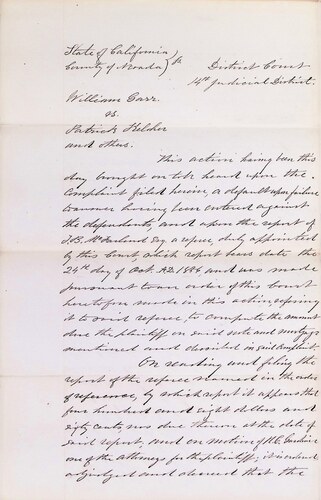 State of California
County of Nevada } ss
District Court
14th Judicial District.
William Carr
vs.
Patrick Kelcher
and others.
This action having been this
day brought on to be heard upon the
Complaint filed herein, a default upon failure
to answer having been entered against
the defendants, and upon the report of
J.B. McFarland Esq a referee duly appointed
by this Court, which report bears date the
24th day of Oct. A.D. and was made
pursuant to an order of this Court
heretofore made in this action, referring
it to said referee to compute the amount
due the plaintiff on said note and mortgage
mentioned and described in said Complaint.
On reading and filing the
report of the referee named in the order
of reference, by which report it appears that
four hundred and eight dollars and
sixty cents was due thereon at the date of
said report, and on motion of
one of the attorneys for the plaintiff; it is ordered
adjudged and decreed that the